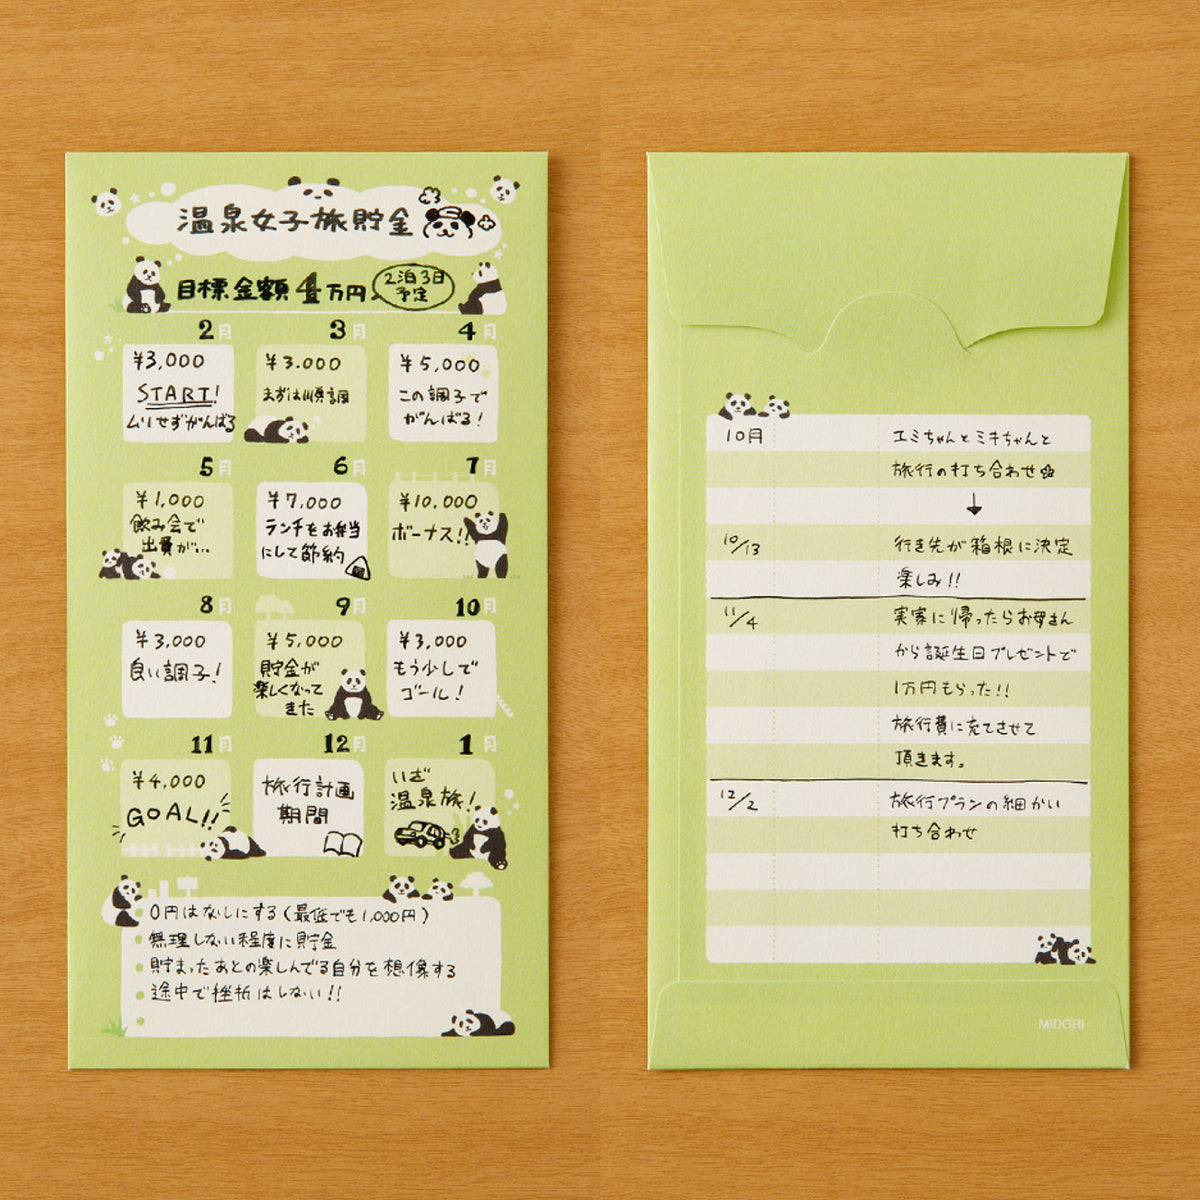 温泉女子旅貯金
目標金額4万円
2泊3日
予定
2月
¥3,000
START!
ムリせずがんばる
3月
¥3.000
まずは順調
4月
¥5,000
この調子で
がんばる!
5月
¥1,000
飲み会で
出費が…
6月
¥7,000
ランチをお弁当
にして節約
7月
¥10,000
ボーナス!!
8月
¥3,000
良い調子!
9月
¥5,000
貯金が
楽しくなって
きた
10月
¥3,000
もう少しで
ゴール!
11月
¥4,000
GOAL!!
12月
旅行計画
期間
1月
いざ
温泉旅!
0円はなしにする(最低でも1,000円)
無理しない程度に貯金
貯まったあとの楽しんでる自分を想像する
途中で挫折はしない!!
10月 エミちゃんとミキちゃんと
旅行の打ち合わせ
↓
10/13 行き先が箱根に決定
楽しみ!!
11/4 実家に帰ったらお母さん
から誕生日プレゼントで
1万円もらった!!
旅行費に充てさせて
頂きます。
12/2 旅行プランの細かい
打ち合わせ
MIDORI